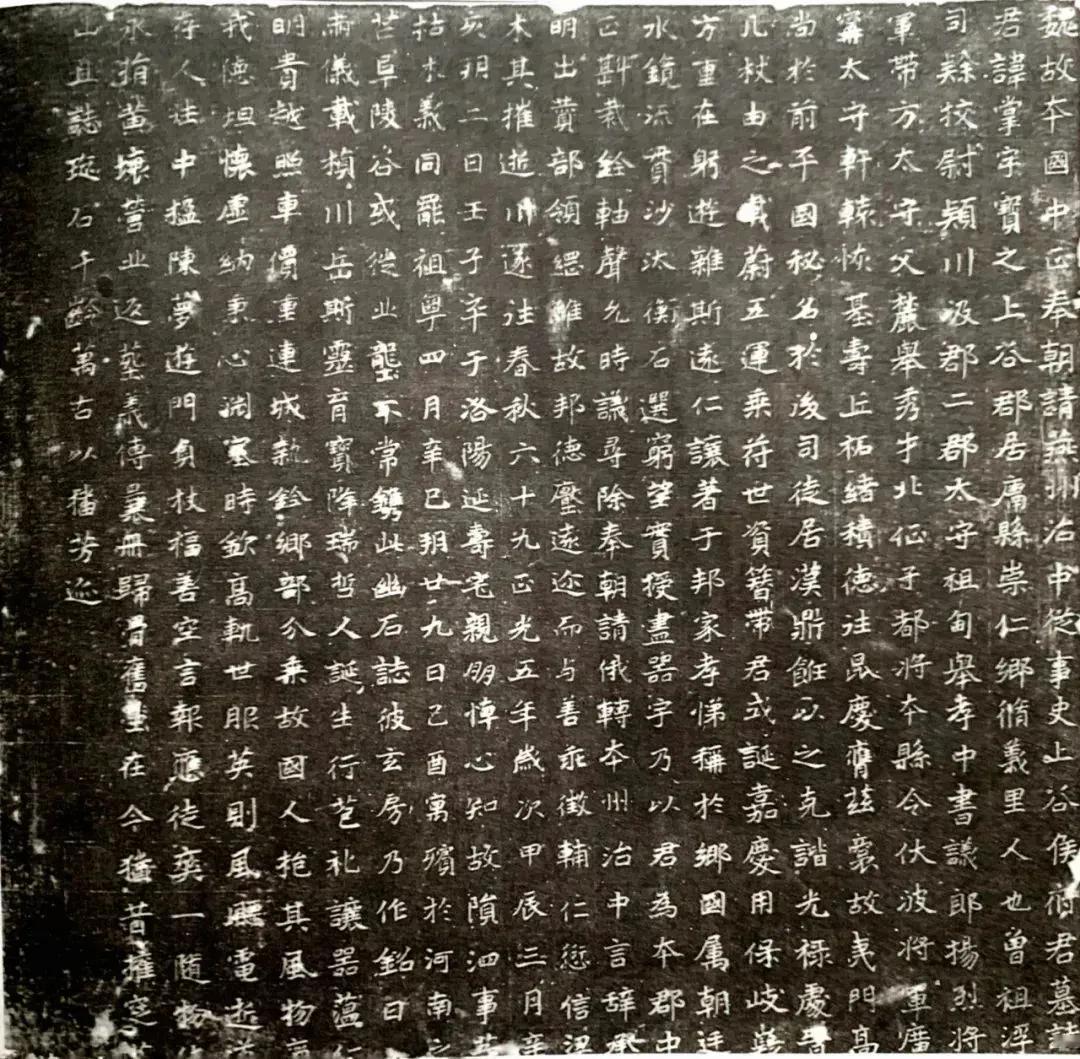 魏故本國中正奉朝請燕州治中從事史上谷侯府君墓誌
君諱掌字寶之上谷郡居庸縣崇仁鄉脩義里人也曾祖浮
司隸挍尉潁川汲郡二郡太守祖甸舉孝中書議郎揚烈將
軍帶方太守父麟舉秀才北征子都將本縣令伏波將軍厝
甯太守軒轅恢基壽丘柘緒積德往昆慶膺茲裔故夷門高
尚於前平國秘名於後司徒居漢鼎餁以之克諧光祿處晉
几杖由之載蔚五運乘苻世資簪帶君或誕嘉慶用保岐嶷
方重在躬遊雜斯遠仁讓著于邦家孝悌稱於鄉國属朝廷
水鏡流貫沙汰衡石選窮望實授盡器宇乃以君為本郡中
正斟裁銓軸聲允時議尋除奉朝請俄轉本州治中言辭承
明出賛部領繩維故邦德壓遠迩而与善乖徵輔仁愆信梁
木其摧逝川遂往春秋六十九正光五年歲次甲辰三月辛
亥玥二日壬子卒于洛陽延壽宅親朋悼心知故隕泗事
枯木義同罷祖粤四月辛巳玥廿九日己酉寓殯於河南之
芒阜陵谷或徙丘壟不常鐫此幽石誌彼玄房乃作銘曰
兩儀載楨川岳斯靈育寶降瑞哲人誕生行苞礼讓器蘊仁
明貴越照車價重連城執鈴鄉部分乘故國人抱其風物
我德坦懷虛納秉心淵塞時欽高軌世服英則風飈電逝
存人往中楹陳夢遊門負杖福善空言報應徒奕一随物
永捐茵壞營丘返塟義傳曩冊歸骨舊塋在今猶昔攉窆
山且誌琁石千齡萬古以播芳迹